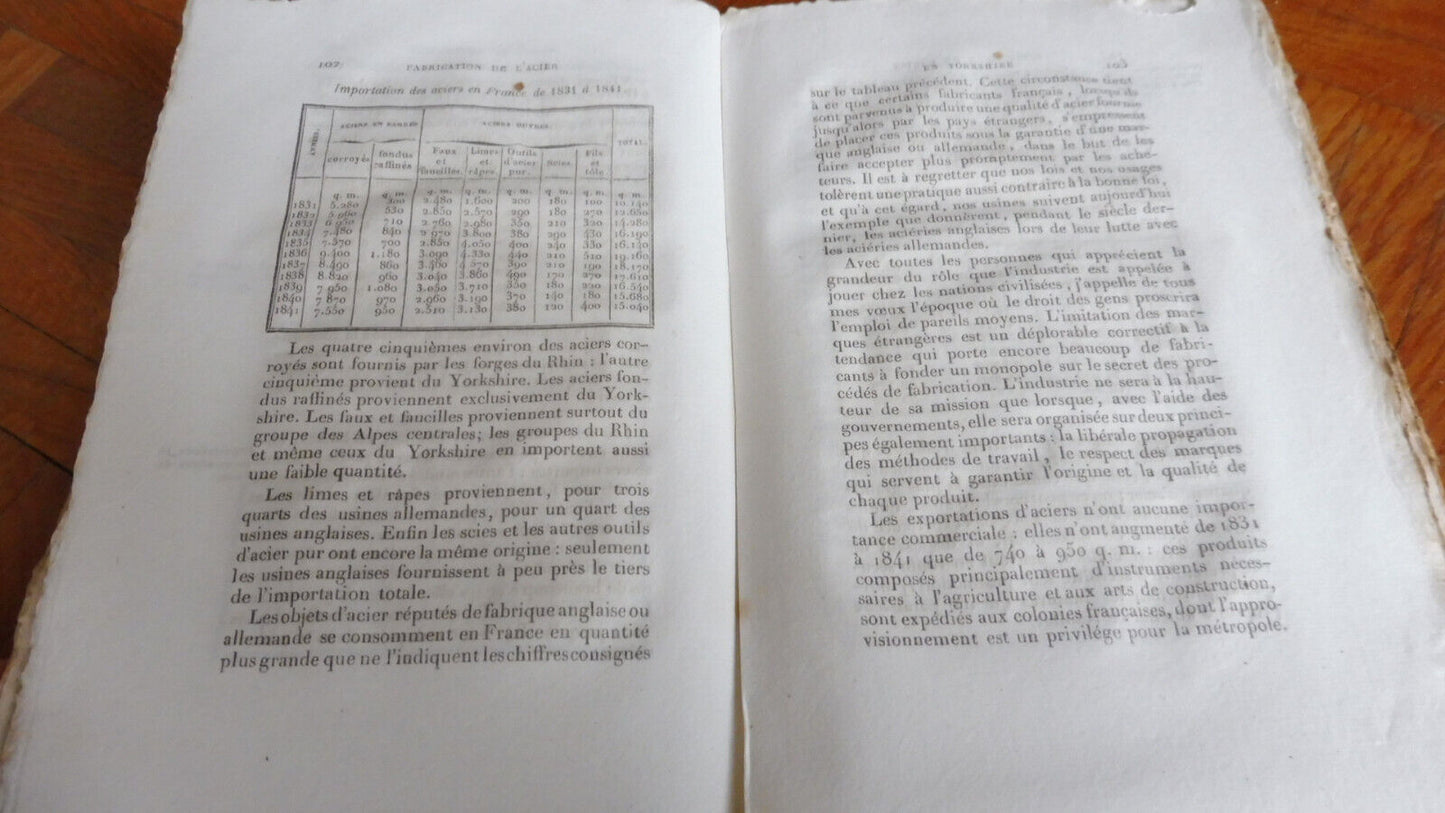 102 FABRICATION DE L'ACIER
Importation des aciers en France de 1831 à 1841
ANNÉES. ACIERS EN BARRES ACIERS OUVRÉS. TOTAL.
corroyés fondus raffinés Faux et faucilles. Limes et râpes. Outils d'acier pur. Scies. Fils et tôle
q. m. q. m. q. m. q. m. q. m. q. m. q. m. q. m.
1831 5.280 300 2.480 1.600 200 180 100 10.140
1832 5.960 530 2.850 2.570 290 180 270 12.650
1833 6.950 710 2.760 2.980 350 210 320 14.280
1834 7.480 840 2.970 3.800 380 290 430 16.190
1835 7.570 700 2.850 4.050 400 240 330 16.140
1836 9.400 1.180 3.090 4.330 440 210 510 19.160
1837 8.490 860 3.460 4.370 390 210 190 18.170
1838 8.820 960 3.040 3.860 490 170 270 17.610
1839 7.950 1.080 3.050 3.710 350 180 220 16.540
1840 7.870 970 2.960 3.190 370 140 180 15.680
1841 7.550 950 2.510 3.130 380 120 400 15.040
Les quatre cinquièmes environ des aciers cor-
royés sont fournis par les forges du Rhin : l'autre
cinquième provient du Yorkshire. Les aciers fon-
dus raffinés proviennent exclusivement du York-
shire. Les faux et faucilles proviennent surtout du
groupe des Alpes centrales; les groupes du Rhin
et même ceux du Yorkshire en importent aussi
une faible quantité.
Les limes et râpes proviennent, pour trois
quarts des usines allemandes, pour un quart des
usines anglaises. Enfin les scies et les autres outils
d'acier pur ont encore la même origine : seulement
les usines anglaises fournissent à peu près le tiers
de l'importation totale.
Les objets d'acier réputés de fabrique anglaise ou
allemande se consomment en France en quantité
plus grande que ne l'indiquent les chiffres consignés
EN YORKSHIRE 103
sur le tableau précédent. Cette circonstance tient
à ce que certains fabricants français, lorsqu'ils
sont parvenus à produire une qualité d'acier fournie
jusqu'alors par les pays étrangers, s'empressent
de placer ces produits sous la garantie d'une mar-
que anglaise ou allemande, dans le but de les
faire accepter plus promptement par les ache-
teurs. Il est à regretter que nos lois et nos usages
tolèrent une pratique aussi contraire à la bonne foi,
et qu'à cet égard, nos usines suivent aujourd'hui
l'exemple que donnèrent, pendant le siècle der-
nier, les aciéries anglaises lors de leur lutte avec
les aciéries allemandes.
Avec toutes les personnes qui apprécient la
grandeur du rôle que l'industrie est appelée à
jouer chez les nations civilisées, j'appelle de tous
mes vœux l'époque où le droit des gens proscrira
l'emploi de pareils moyens. L'imitation des mar-
ques étrangères est un déplorable correctif à la
tendance qui porte encore beaucoup de fabri-
cants à fonder un monopole sur le secret des pro-
cédés de fabrication. L'industrie ne sera à la hau-
teur de sa mission que lorsque, avec l'aide des
gouvernements, elle sera organisée sur deux princi-
pes également importants : la libérale propagation
des méthodes de travail, le respect des marques
qui servent à garantir l'origine et la qualité de
chaque produit.
Les exportations d'aciers n'ont aucune impor-
tance commerciale : elles n'ont augmenté de 1831
à 1841 que de 740 à 950 q. m. : ces produits
composés principalement d'instruments néces-
saires à l'agriculture et aux arts de construction,
sont expédiés aux colonies françaises, dont l'appro-
visionnement est un privilége pour la métropole.